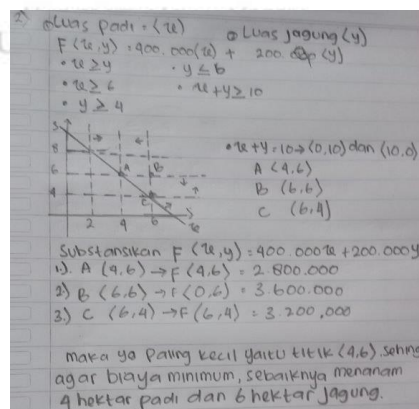 2) Luas padi = (x)
Luas jagung (y)
F(x,y) = 400.000(x) + 200.000 (y)
• x ≥ y
• y ≤ 6
• x ≥ 6
• x + y ≥ 10
• y ≥ 4
• x + y = 10 → (0,10) dan (10,0)
A (4,6)
B (6,6)
C (6,4)
8
6
4
A
B
C
2 4 6
Substansikan F (x,y) = 400.000x + 200.000y
1.) A (4,6) → F(4,6) = 2.800.000
2) B (6,6) → F(0,6) = 3.600.000
3.) C (6,4) → F(6,4) = 3.200.000
maka yg paling kecil yaitu titik (4,6), sehing
agar biaya minimum, sebaiknya menanam
4 hektar padi dan 6 hektar jagung.